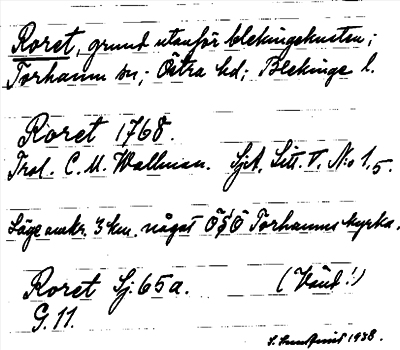 Roret, grund utanför blekingekusten;
Torhamn sn; Östra hd; Blekinge l.
Roret 1768.
Trol. C. M. Wallman. Sjk. Litt. T. N:o 1,5.
Läge omkr. 3 km. något ÖSÖ Torhamns kyrka.
Roret Sj. 65a. (Vänd!)
G. 11.
1938.